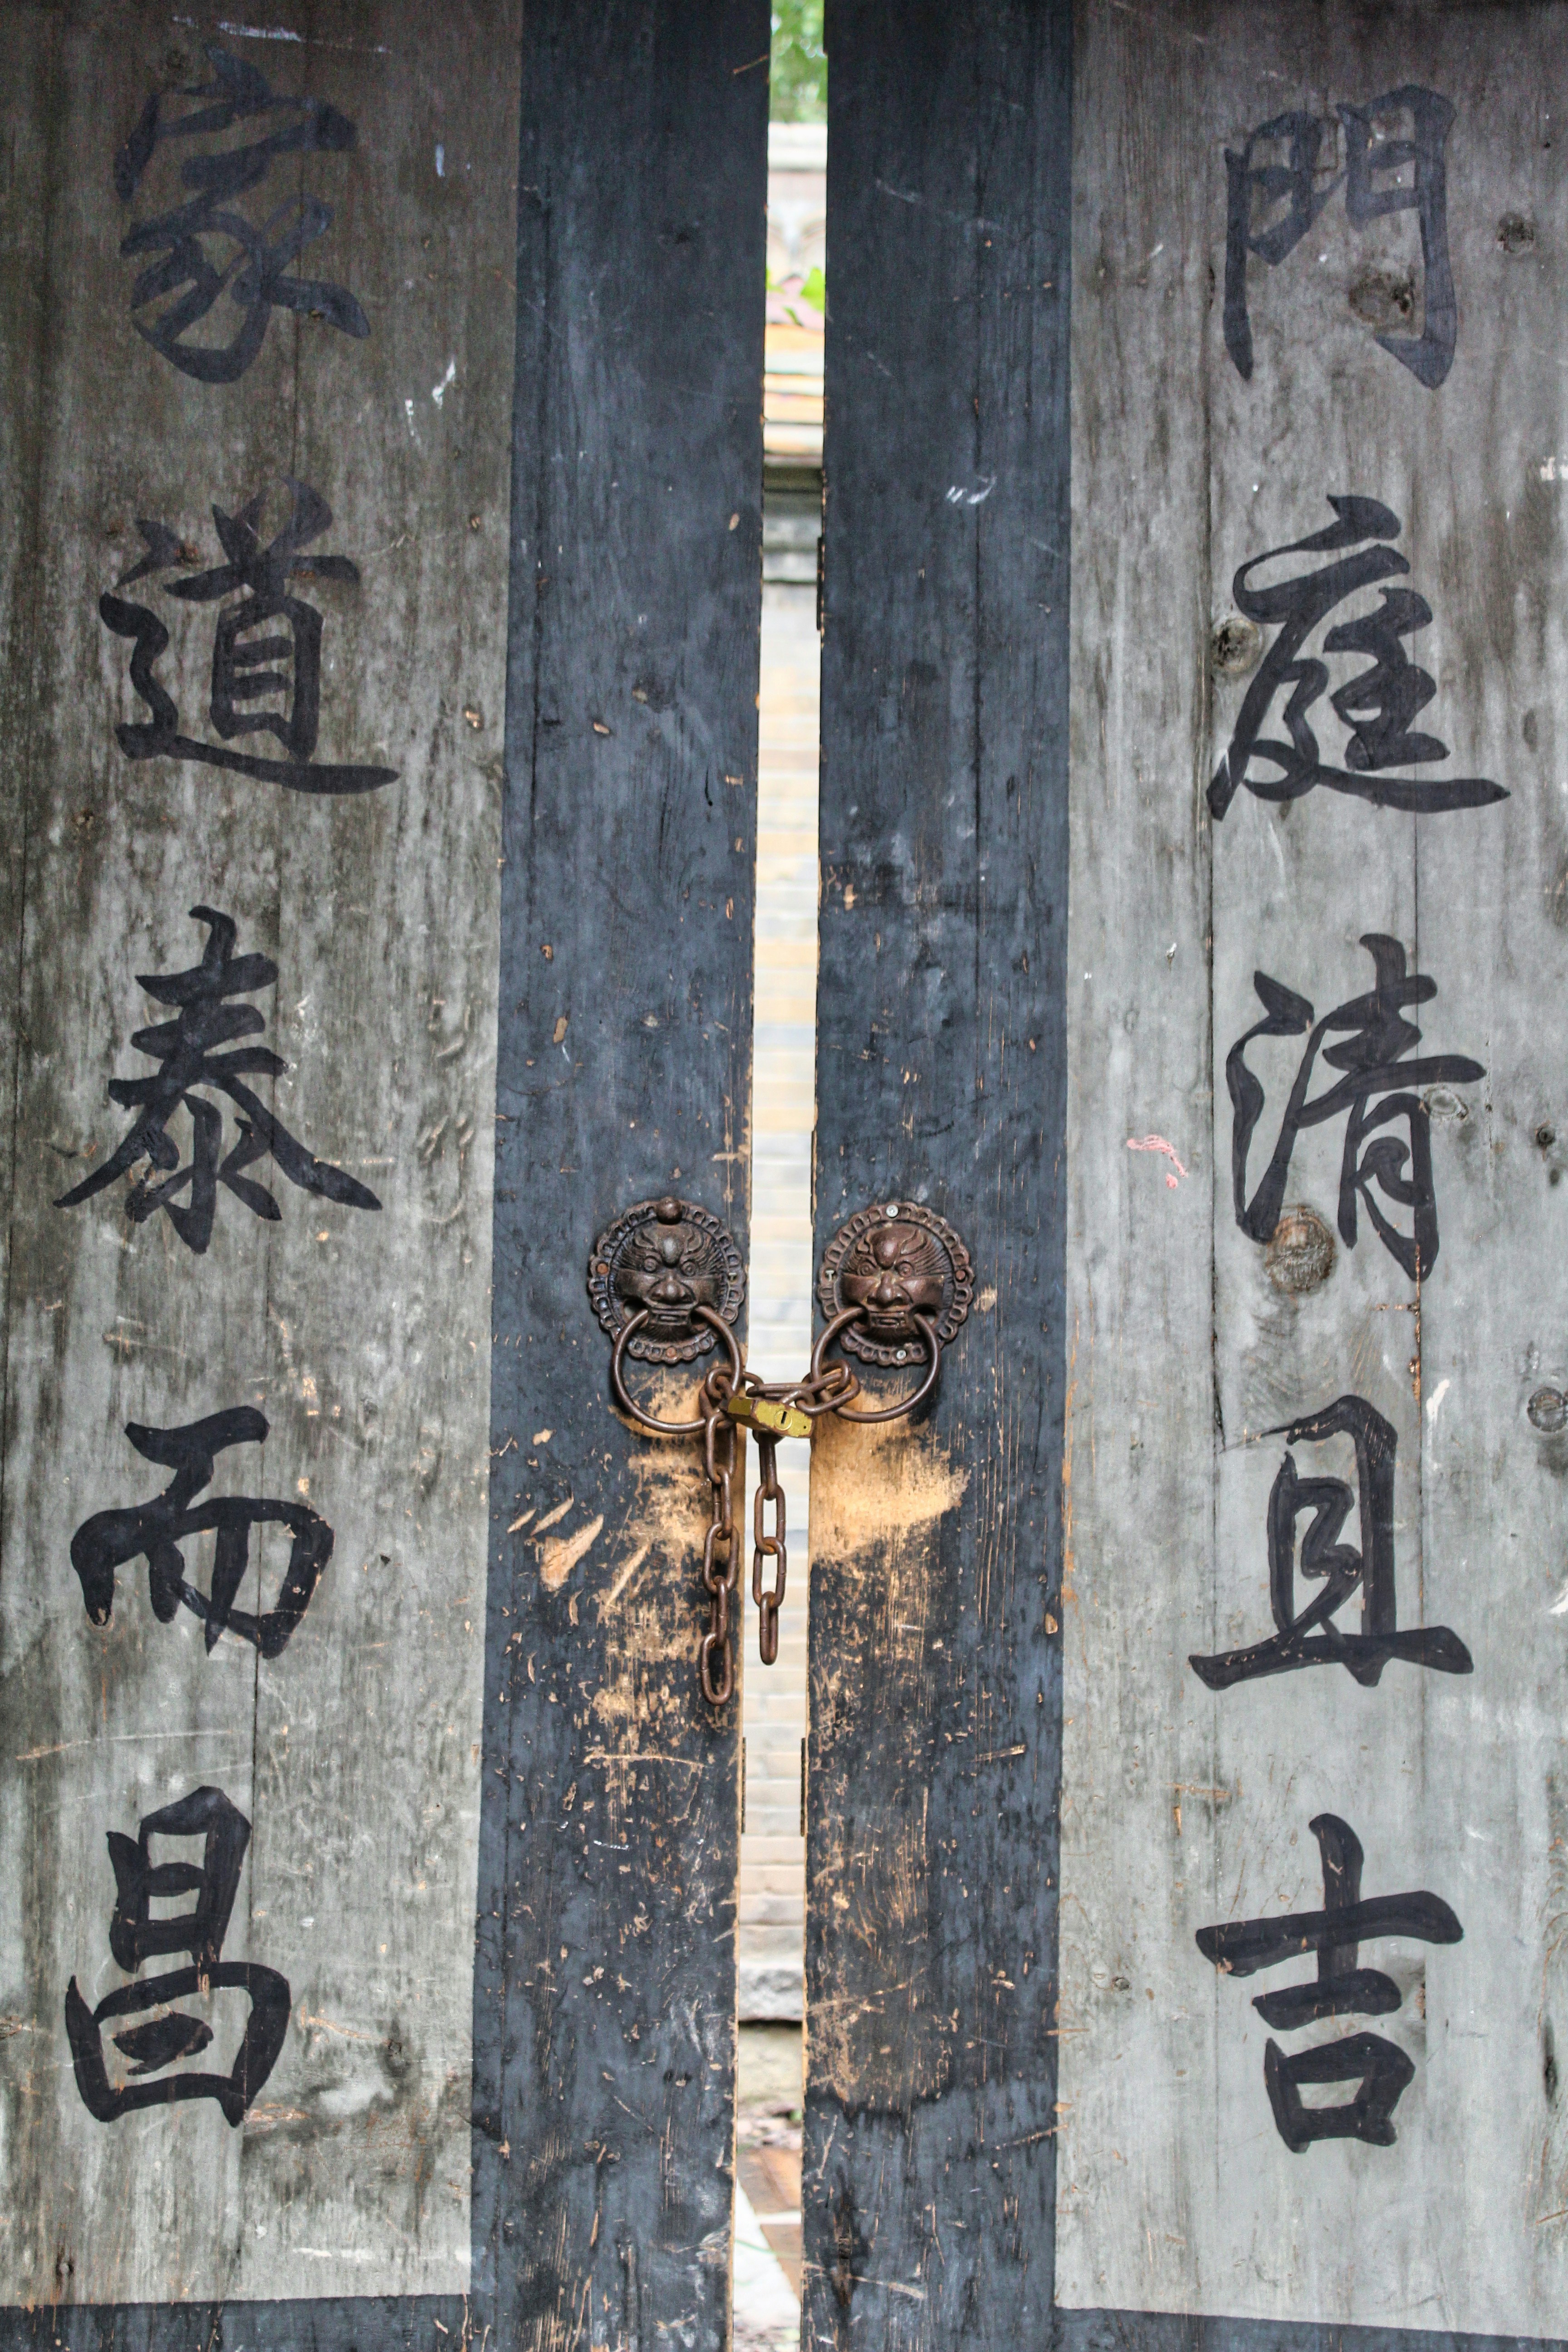 門庭清且吉
家道泰而昌